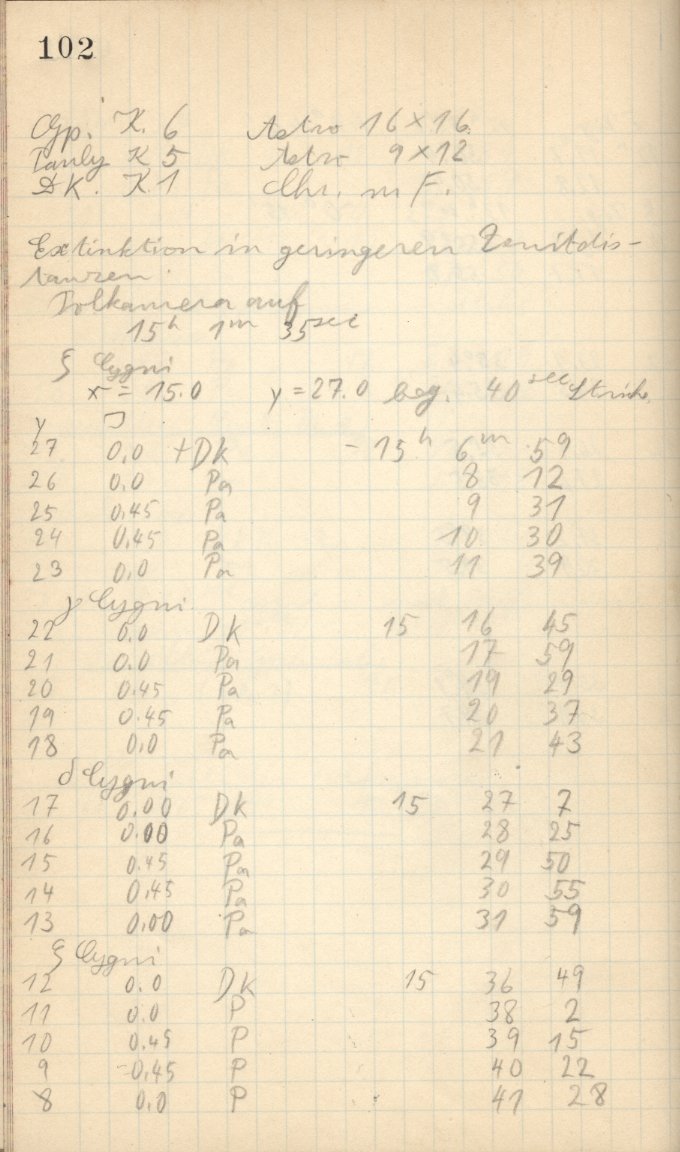 102
K. 6 Astro 16×16
Pauly K 5 Astro 9×12
DK. K.1 Chr. m F.
Extinktion in geringeren Zenitdis-
tanzen.
Polkamera auf
15h 1m 35sec
ξ Cygni
x = 15.0 y = 27.0 beg. 40 sec Striche
y
27 0,0 + DK - 15h 6m 59
26 0.0 Pa 8 12
25 0,45 Pa 9 31
24 0,45 Pa 10 30
23 0,0 Pa 11 39
γ Cygni
22 0.0 DK 15 16 45
21 0.0 Pa 17 59
20 0.45 Pa 19 29
19 0.45 Pa 20 37
18 0,0 Pa 21 43
δ Cygni
17 0,00 DK 15 27 7
16 0.00 Pa 28 25
15 0.45 Pa 29 50
14 0,45 Pa 30 55
13 0,00 Pa 31 59
ξ Cygni
12 0.0 DK 15 36 49
11 0.0 P 38 2
10 0.45 P 39 15
9 0,45 P 40 22
8 0,0 P 41 28